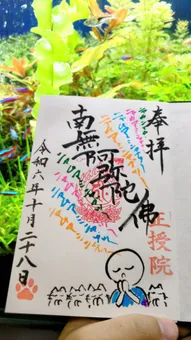 奉拝
南無阿弥陀佛
正授院
令和六年十月二十八日